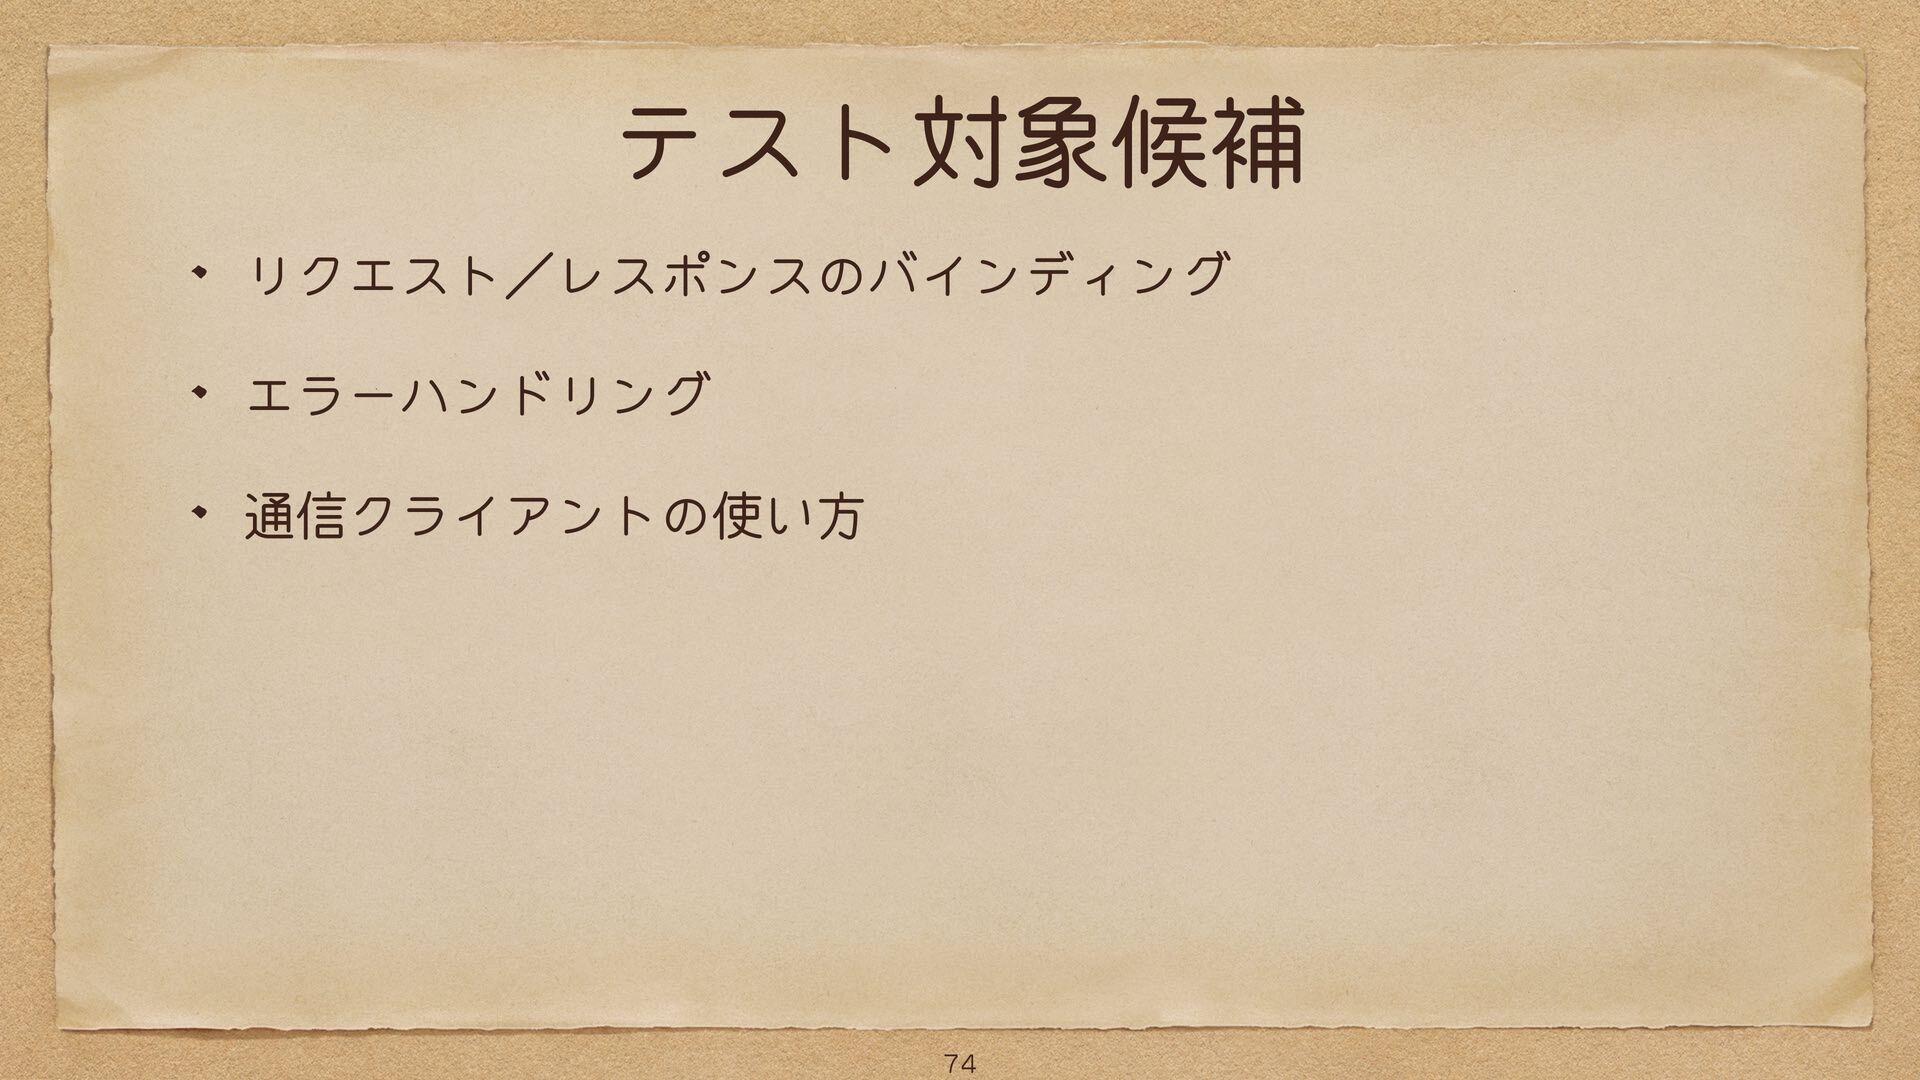 テスト対象候補
• リクエスト／レスポンスのバインディング
• エラーハンドリング
• 通信クライアントの使い方
74